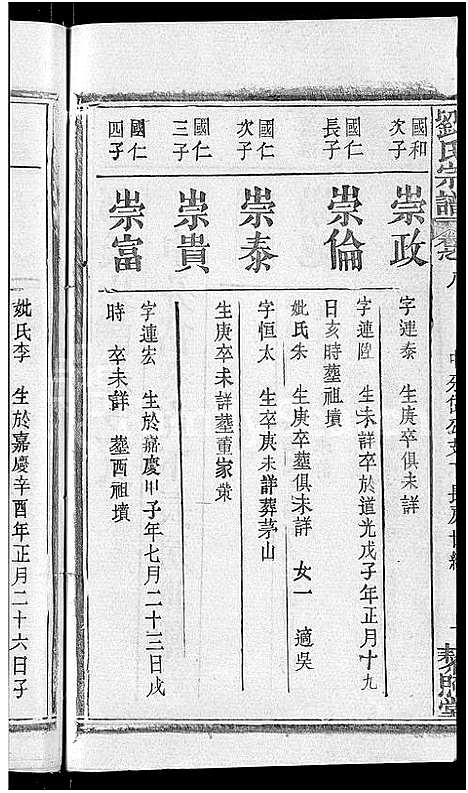 劉氏宗譜
卷之八
國和次子
崇政
字連泰　生庚卒俱未詳
國仁長子
崇倫
字連陞　生未詳卒於道光戊子年正月十九
日亥時塟祖墳
妣氏朱　生庚卒塟俱未詳　女一　適吳
國仁次子
崇泰
字恒太　生卒庚未詳葬茅山
國仁三子
崇貴
生庚卒未詳塟董家
國仁四子
崇富
字連宏　生於嘉慶甲子年七月二十三日戌
時　卒未詳　塟西祖墳
妣氏李　生於嘉慶辛酉年正月二十六日子